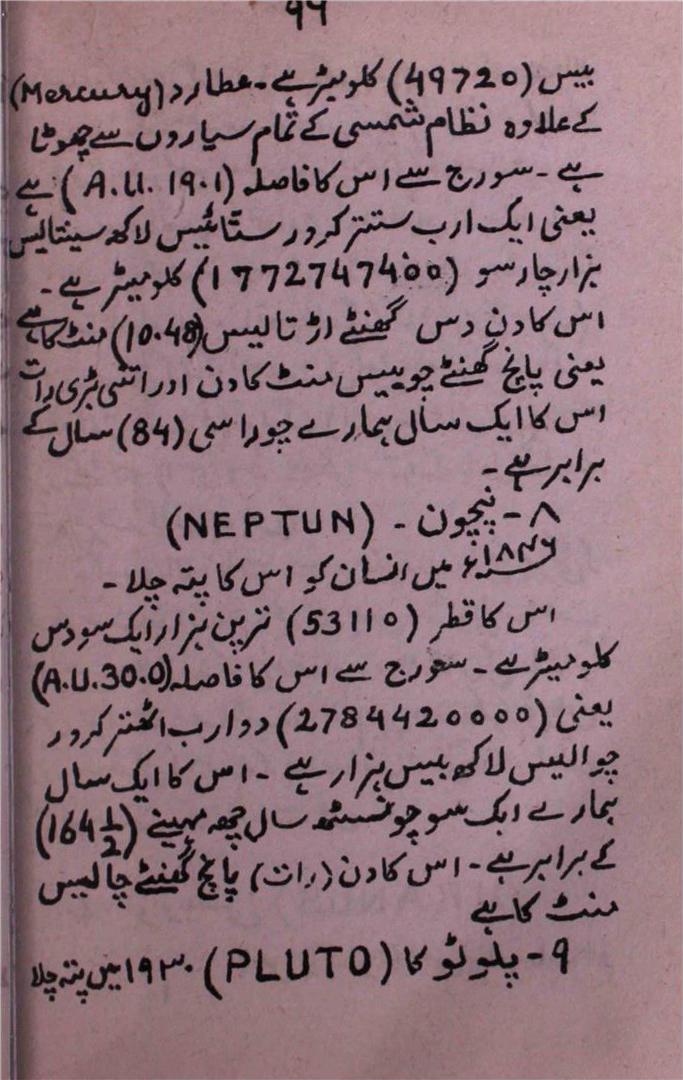 ۹۹
بیس (49720) کلومیٹر ہے۔ عطارد (Mercury)
کے علاوہ نظام شمسی کے تمام سیاروں سے چھوٹا
ہے۔ سورج سے اس کا فاصلہ (A.U. 19.1) ہے
یعنی ایک ارب ستتر کرور ستّائیس لاکھ سینتالیس
ہزار چار سو (1772747400) کلومیٹر ہے۔
اس کا دن دس گھنٹے اڑتالیس (10.48) منٹ کا ہے
یعنی پانچ گھنٹے چوبیس منٹ کا دن اور اتنی بڑی رات
اس کا ایک سال ہمارے چوراسی (84) سال کے
برابر ہے۔
۸۔ نیپچون۔ (NEPTUN)
۱۸۴۶ء میں انسان کو اس کا پتہ چلا۔
اس کا قطر (53110) ترپن ہزار ایک سو دس
کلومیٹر ہے۔ سورج سے اس کا فاصلہ (A.U.30.0)
یعنی (2784420000) دو ارب اٹھتر کرور
چوالیس لاکھ بیس ہزار ہے۔ اس کا ایک سال
ہمارے ایک سو چونسٹھ سال چھ مہینے (164 1/2)
کے برابر ہے۔ اس کا دن (رات) پانچ گھنٹے چالیس
منٹ کا ہے
۹۔ پلوٹو کا (PLUTO) ۱۹۳۰ میں پتہ چلا